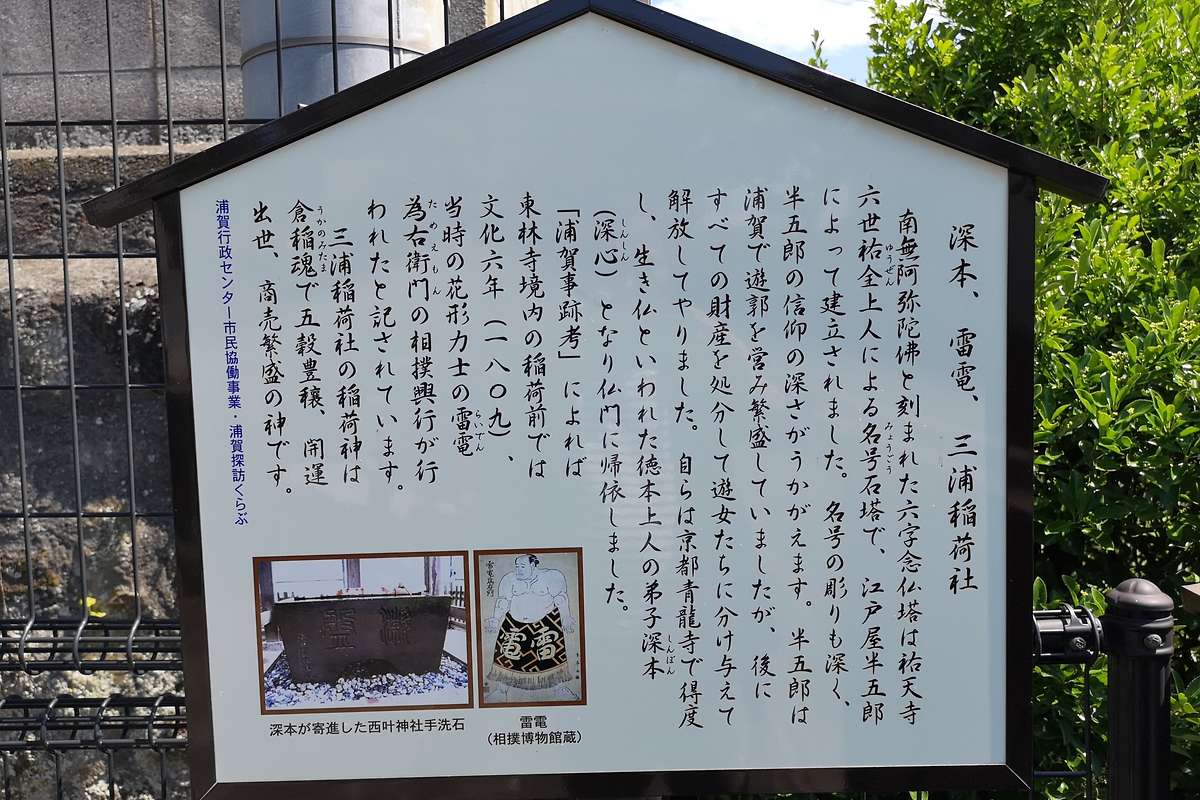 深本、雷電、三浦稲荷社
南無阿弥陀佛と刻まれた六字念仏塔は祐天寺
六世祐全上人による名号石塔で、江戸屋半五郎
ゆうぜん
みょうごう
によって建立されました。名号の彫りも深く、
半五郎の信仰の深さがうかがえます。半五郎は
浦賀で遊郭を営み繁盛していましたが、後に
すべての財産を処分して遊女たちに分け与えて
解放してやりました。自らは京都青龍寺で得度
し、生き仏といわれた徳本上人の弟子深本
しんぽん
(深心)となり仏門に帰依しました。
しんしん
「浦賀事跡考」によれば
東林寺境内の稲荷前では
文化六年(一八〇九)、
当時の花形力士の雷電
らいでん
為右衛門の相撲興行が行
ためえもん
われたと記されています。
三浦稲荷社の稲荷神は
倉稲魂で五穀豊穣、開運
うかのみたま
出世、商売繁盛の神です。
浦賀行政センター市民協働事業・浦賀探訪くらぶ
深本が寄進した西叶神社手洗石
雷電
(相撲博物館蔵)
雷電